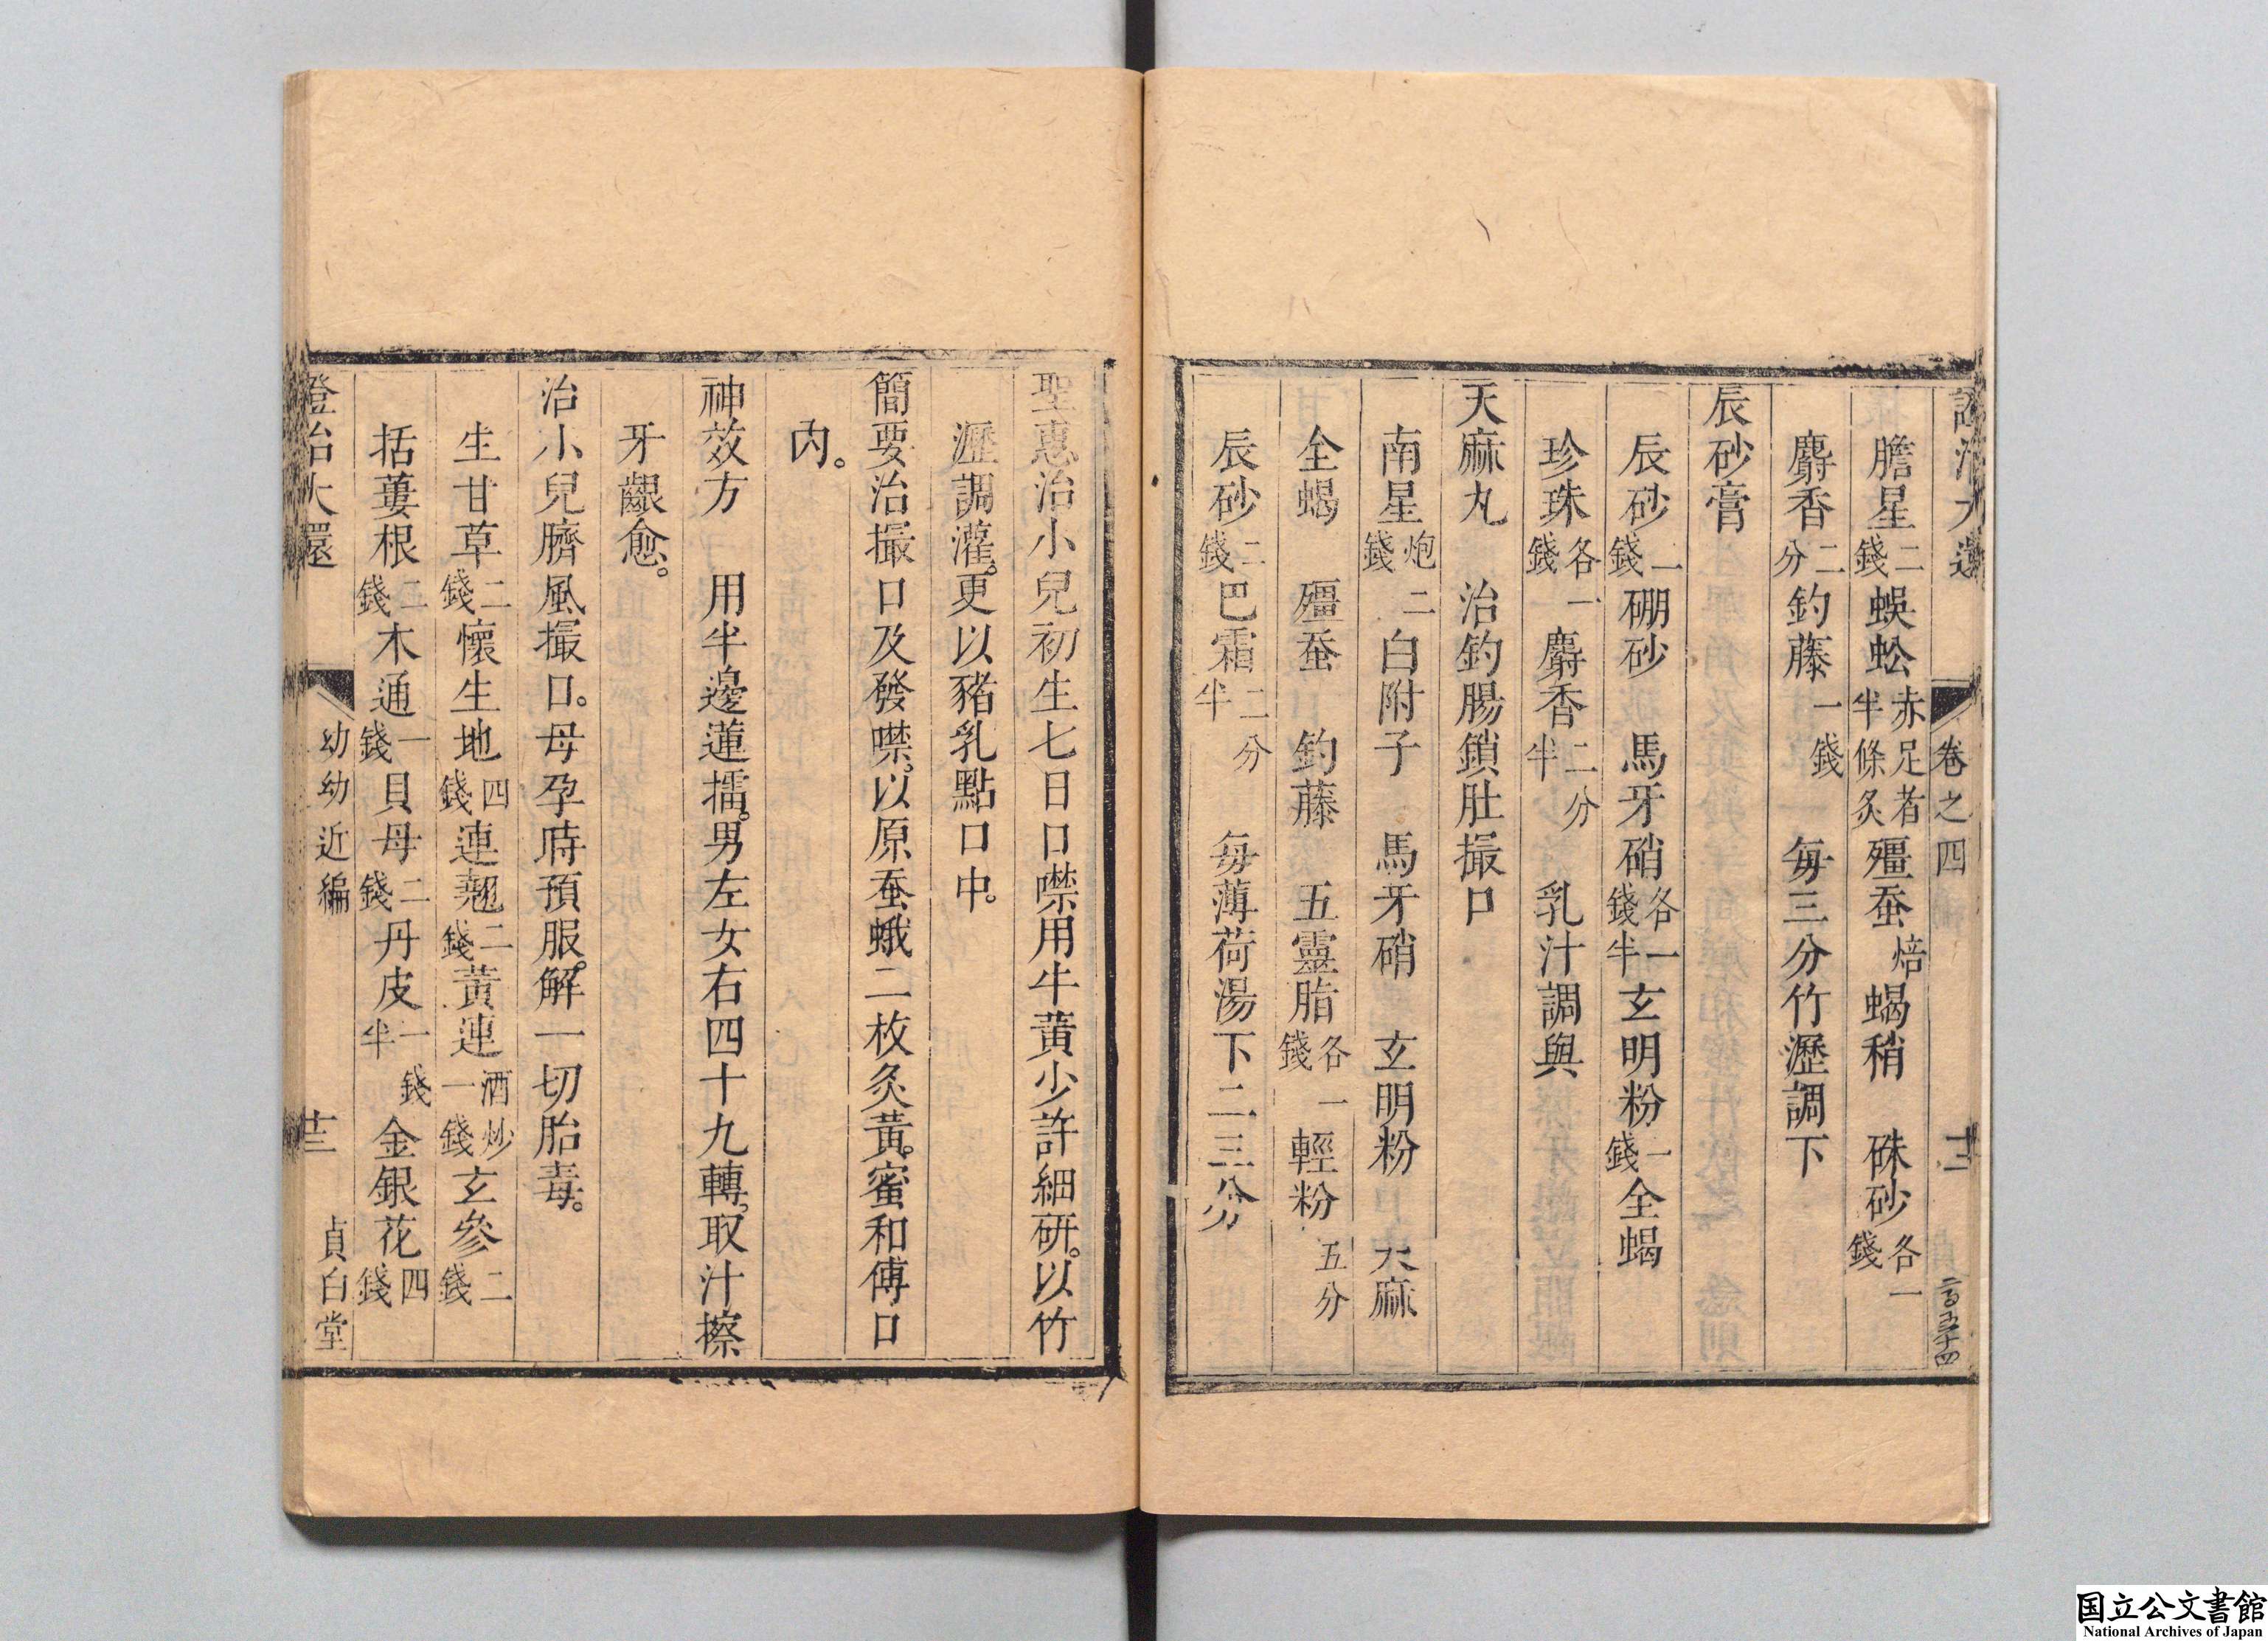 卷之四
十三
二百五十四
膽星二錢蜈蚣赤足者半條炙殭蚕焙蝎稍　硃砂各一錢
麝香二分釣藤一錢　每三分竹瀝調下
辰砂膏
辰砂一錢硼砂　馬牙硝各一錢半玄明粉一錢全蝎
珍珠各一錢麝香二分半　乳汁調與
天麻丸　治釣腸鎖肚撮口
南星炮二錢白附子　馬牙硝　玄明粉　天麻
全蝎　殭蚕　釣藤　五靈脂各一錢輕粉五分
辰砂二錢巴霜二分半　每薄荷湯下二三分
聖惠治小兒初生七日口噤用牛黃少許細研。以竹
瀝調灌。更以豬乳點口中。
簡要治撮口及發噤。以原蚕蛾二枚炙黃。蜜和傅口
內。
神效方　用半邊蓮擂。男左女右四十九轉。取汁擦
牙齦愈。
治小兒臍風撮口。母孕時預服。解一切胎毒。
生甘草二錢懷生地四錢連翹二錢黃連酒炒一錢玄參二錢
括蔞根二錢木通一錢貝母二錢丹皮一錢半金銀花四錢
證治大還　幼幼近編　十三　貞白堂
国立公文書館
National Archives of Japan